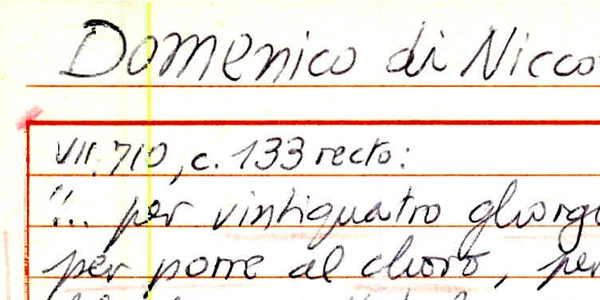 Domenico di Nicco
VII. 710, c. 133 recto:
"... per vintiquatro ghorgo
per porre al choro, per